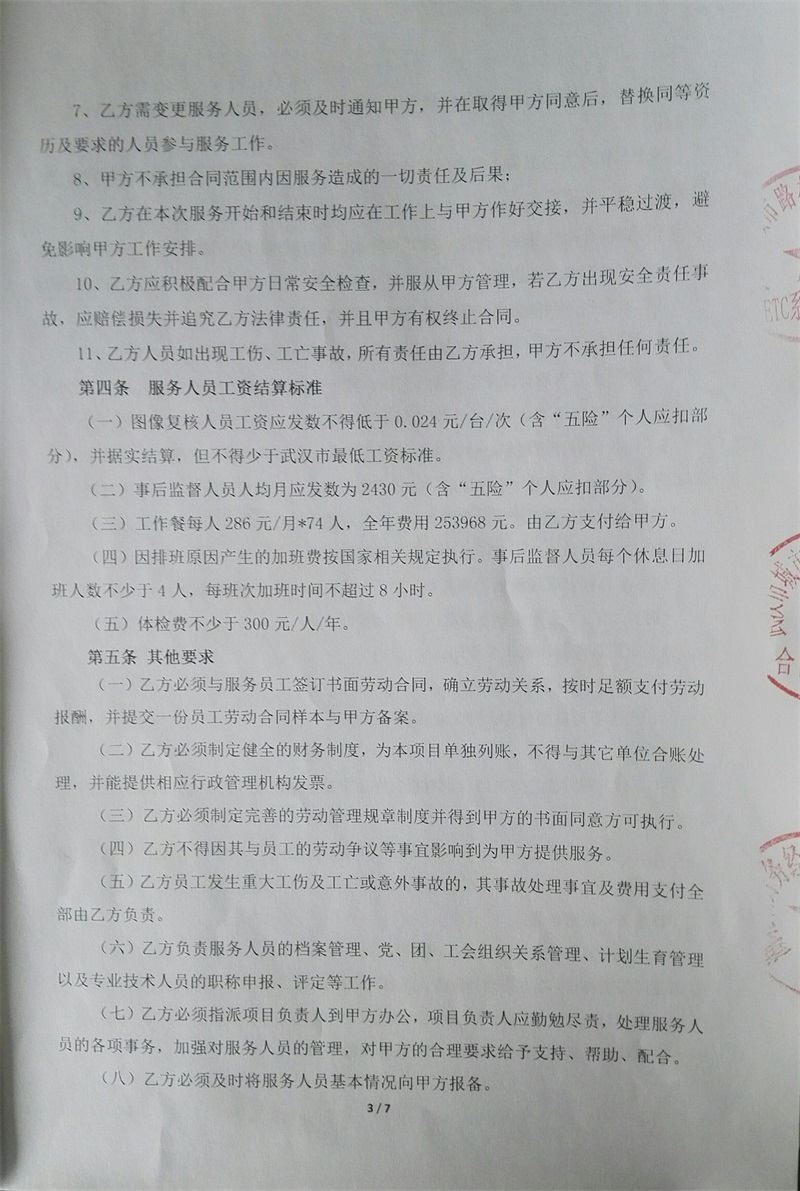 7、乙方需变更服务人员，必须及时通知甲方，并在取得甲方同意后，替换同等资
历及要求的人员参与服务工作。
8、甲方不承担合同范围内因服务造成的一切责任及后果；
9、乙方在本次服务开始和结束时均应在工作上与甲方作好交接，并平稳过渡，避
免影响甲方工作安排。
10、乙方应积极配合甲方日常安全检查，并服从甲方管理，若乙方出现安全责任事
故，应赔偿损失并追究乙方法律责任，并且甲方有权终止合同。
11、乙方人员如出现工伤、工亡事故，所有责任由乙方承担，甲方不承担任何责任。
第四条 服务人员工资结算标准
（一）图像复核人员工资应发数不得低于0.024元/台/次（含“五险”个人应扣部
分），并据实结算，但不得少于武汉市最低工资标准。
（二）事后监督人员人均月应发数为2430元（含“五险”个人应扣部分）。
（三）工作餐每人286元/月*74人，全年费用253968元。由乙方支付给甲方。
（四）因排班原因产生的加班费按国家相关规定执行。事后监督人员每个休息日加
班人数不少于4人，每班次加班时间不超过8小时。
（五）体检费不少于300元/人/年。
第五条 其他要求
（一）乙方必须与服务员工签订书面劳动合同，确立劳动关系，按时足额支付劳动
报酬，并提交一份员工劳动合同样本与甲方备案。
（二）乙方必须制定健全的财务制度，为本项目单独列账，不得与其它单位合账处
理，并能提供相应行政管理机构发票。
（三）乙方必须制定完善的劳动管理规章制度并得到甲方的书面同意方可执行。
（四）乙方不得因其与员工的劳动争议等事宜影响到为甲方提供服务。
（五）乙方员工发生重大工伤及工亡或意外事故的，其事故处理事宜及费用支付全
部由乙方负责。
（六）乙方负责服务人员的档案管理、党、团、工会组织关系管理、计划生育管理
以及专业技术人员的职称申报、评定等工作。
（七）乙方必须指派项目负责人到甲方办公，项目负责人应勤勉尽责，处理服务人
员的各项事务，加强对服务人员的管理，对甲方的合理要求给予支持、帮助、配合。
（八）乙方必须及时将服务人员基本情况向甲方报备。
3 / 7
路
ETC系
合